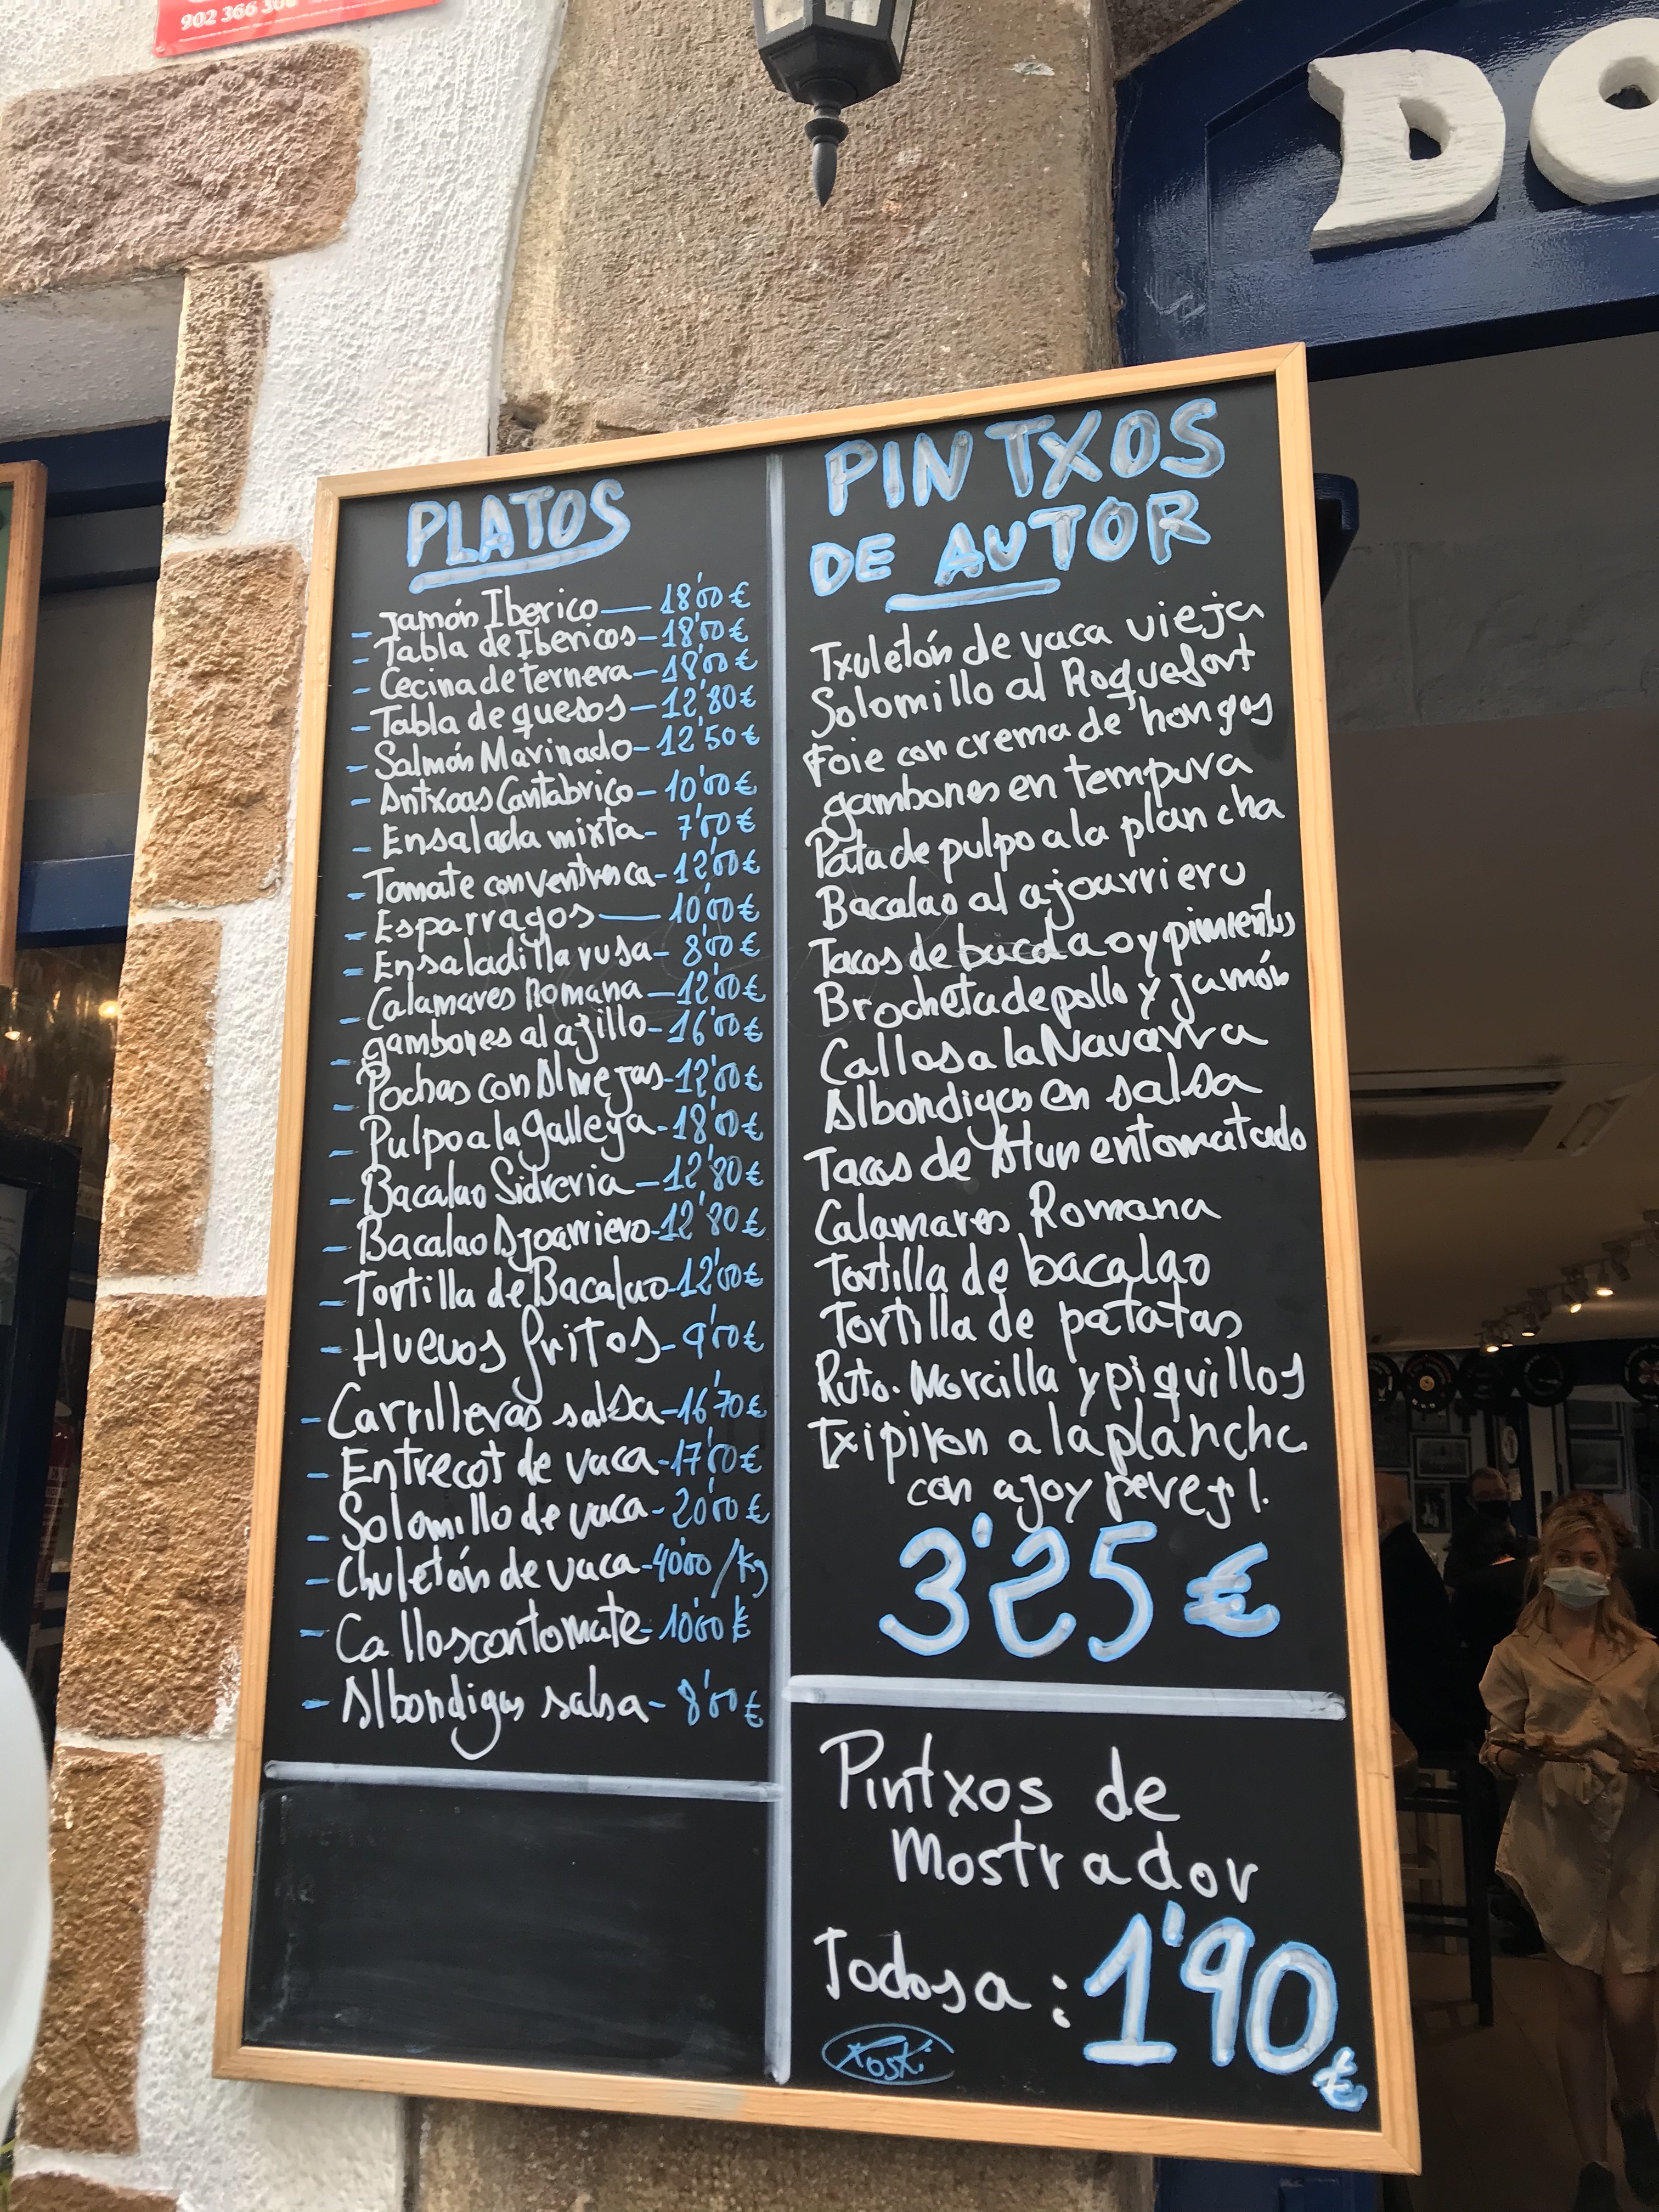 902 366 30
DO
PLATOS
- Jamón Iberico — 18'00 €
- Tabla de Ibericos - 18'00 €
- Cecina de ternera - 18'00 €
- Tabla de quesos - 12'80 €
- Salmón Marinado - 12'50 €
- Antxoas Cantabrico - 10'00 €
- Ensalada mixta - 7'00 €
- Tomate con ventresca - 12'00 €
- Esparragos — 10'00 €
- Ensaladilla rusa - 8'00 €
- Calamares Romana - 12'00 €
- gambones al ajillo - 16'00 €
- Pochas con Almejas - 12'00 €
- Pulpo a la gallega - 18'00 €
- Bacalao Sidreria - 12'80 €
- Bacalao Ajoarriero - 12'80 €
- Tortilla de Bacalao - 12'00 €
- Huevos fritos - 9'00 €
- Carrilleras salsa - 16'70 €
- Entrecot de vaca - 17'00 €
- Solomillo de vaca - 20'00 €
- Chuletón de vaca - 40'00 /kg
- Callos con tomate - 10'00 €
- Albondigas salsa - 8'00 €
PINTXOS
DE AUTOR
Txuletón de vaca vieja
Solomillo al Roquefort
Foie con crema de hongos
gambones en tempura
Pata de pulpo a la plancha
Bacalao al ajoarriero
Tacos de bacalao y pimientos
Brocheta de pollo y jamón
Callos a la Navarra
Albondigas en salsa
Tacos de Atun entomatado
Calamares Romana
Tortilla de bacalao
Tortilla de patatas
Rvto. Morcilla y piquillos
Txipiron a la plancha
con ajo y perejil.
3'25 €
Pintxos de
Mostrador
Todos a : 1'90 €
Koski